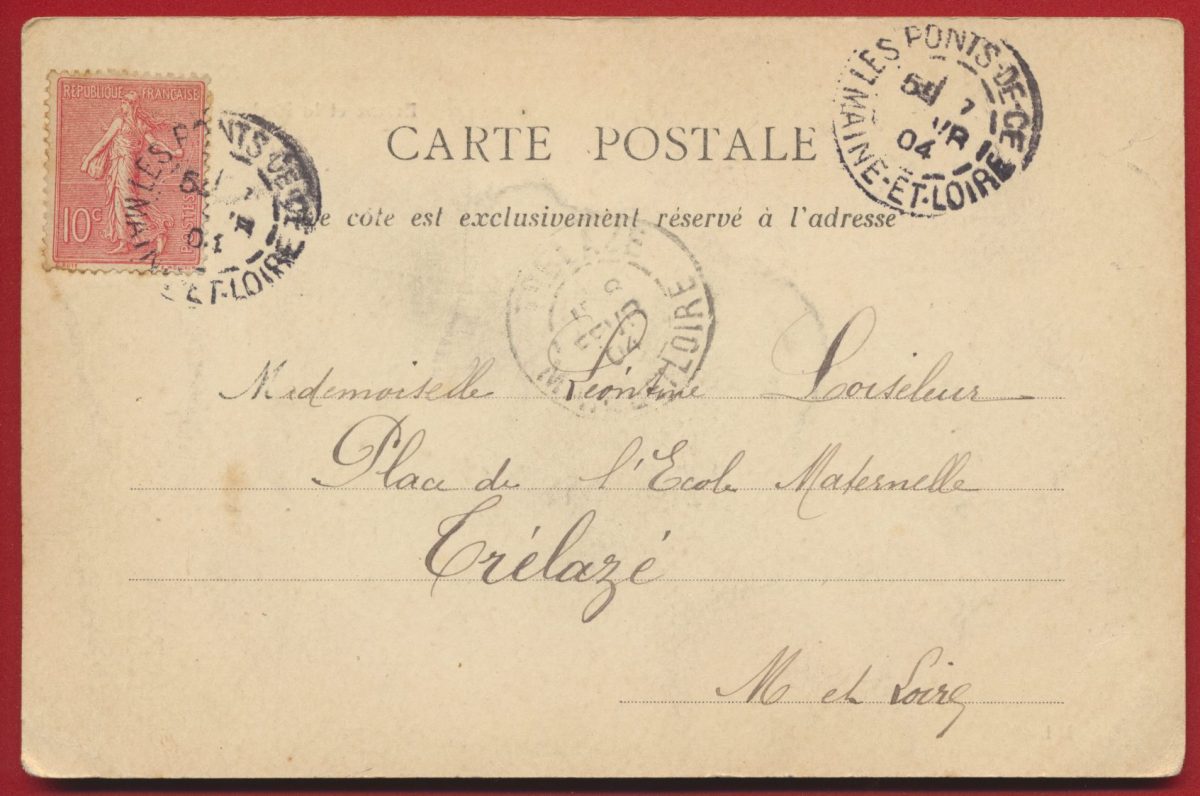 RÉPUBLIQUE FRANÇAISE
10c
POSTES
LES PONTS-DE-CÉ
04
MAINE-ET-LOIRE
LES PONTS-DE-CÉ
7
04
MAINE-ET-LOIRE
CARTE POSTALE
Ce côté est exclusivement réservé à l'adresse
TRÉLAZÉ
8
FEVR
04
LOIRE
Mademoiselle Léontine Loiseleur
Place de l'Ecole Maternelle
Trélazé
M et Loire